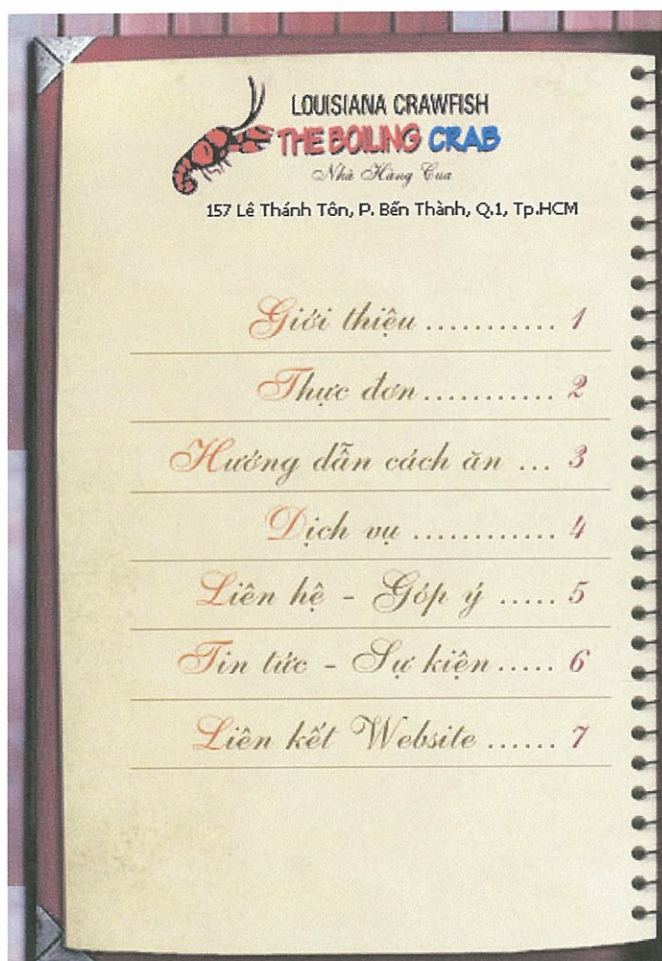 LOUISIANA CRAWFISH
THE BOILING CRAB
Nhà Hàng Cua
157 Lê Thánh Tôn, P. Bến Thành, Q.1, Tp.HCM
Giới thiệu ........... 1
Thực đơn ........... 2
Hướng dẫn cách ăn ... 3
Dịch vụ ............ 4
Liên hệ - Góp ý ..... 5
Tin tức - Sự kiện ..... 6
Liên kết Website ...... 7